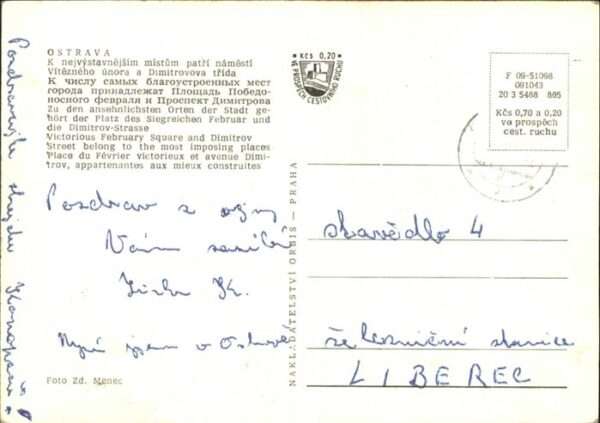 OSTRAVA
K nejvýstavnějším místům patří náměstí
Vítězného února a Dimitrovova třída
К числу самых благоустроенных мест
города принадлежат Площадь Победо-
носного февраля и Проспект Димитрова
Zu den ansehnlichsten Orten der Stadt ge-
hört der Platz des Siegreichen Februar und
die Dimitrov-Strasse
Victorious February Square and Dimitrov
Street belong to the most imposing places
Place du Février victorieux et avenue Dimi-
trov, appartenantes aux mieux construites
Pozdrav z
Vám
Nyní jsem v Ostravě
Foto Zd. Menec
Pozdravujte strejdu
NAKLADATELSTVÍ ORBIS — PRAHA
KČS 0,20
VE PROSPĚCH CESTOVNÍHO RUCHU
F 09-51098
091043
20 3 5468 805
Kčs 0,70 a 0,20
ve prospěch
cest. ruchu
stavědlo 4
železniční stanice
LIBEREC